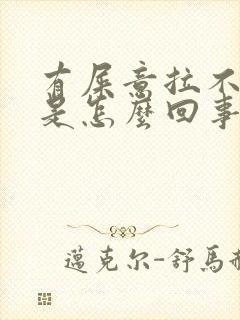 有屎意拉不
是怎麼回事
邁克尔-舒馬赫